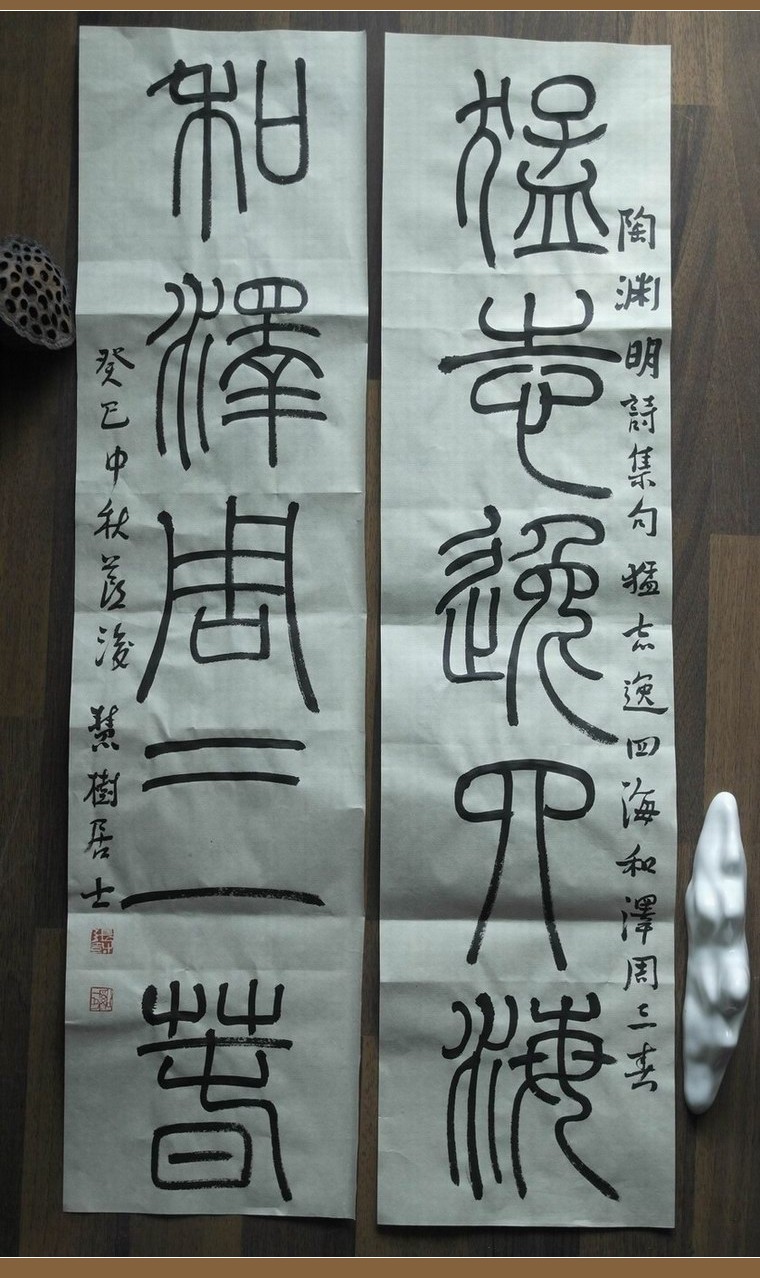 陶渊明詩集句 猛志逸四海和澤周三春
猛志逸四海
和澤周三春
癸巳中秋 慧樹居士